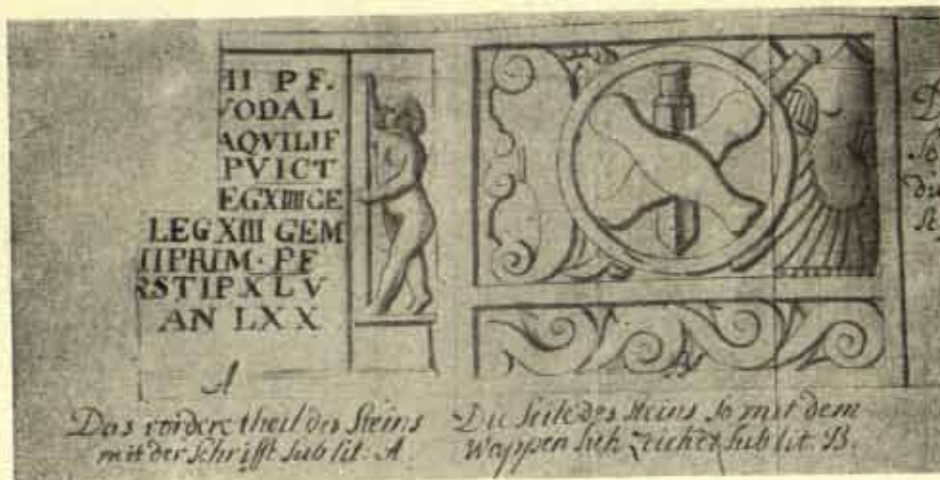 II P F.
VODAL
AQVILIF
PVICT
EGXIIIIGE
LEG XIII GEM
IIPRIM· PF
RSTIPXLV
AN LXX
A
Das vordere theil des Steins
mit der Schrifft sub lit. A
Die seite des Steins so mit dem
Wappen sich zeichet sub lit. B.